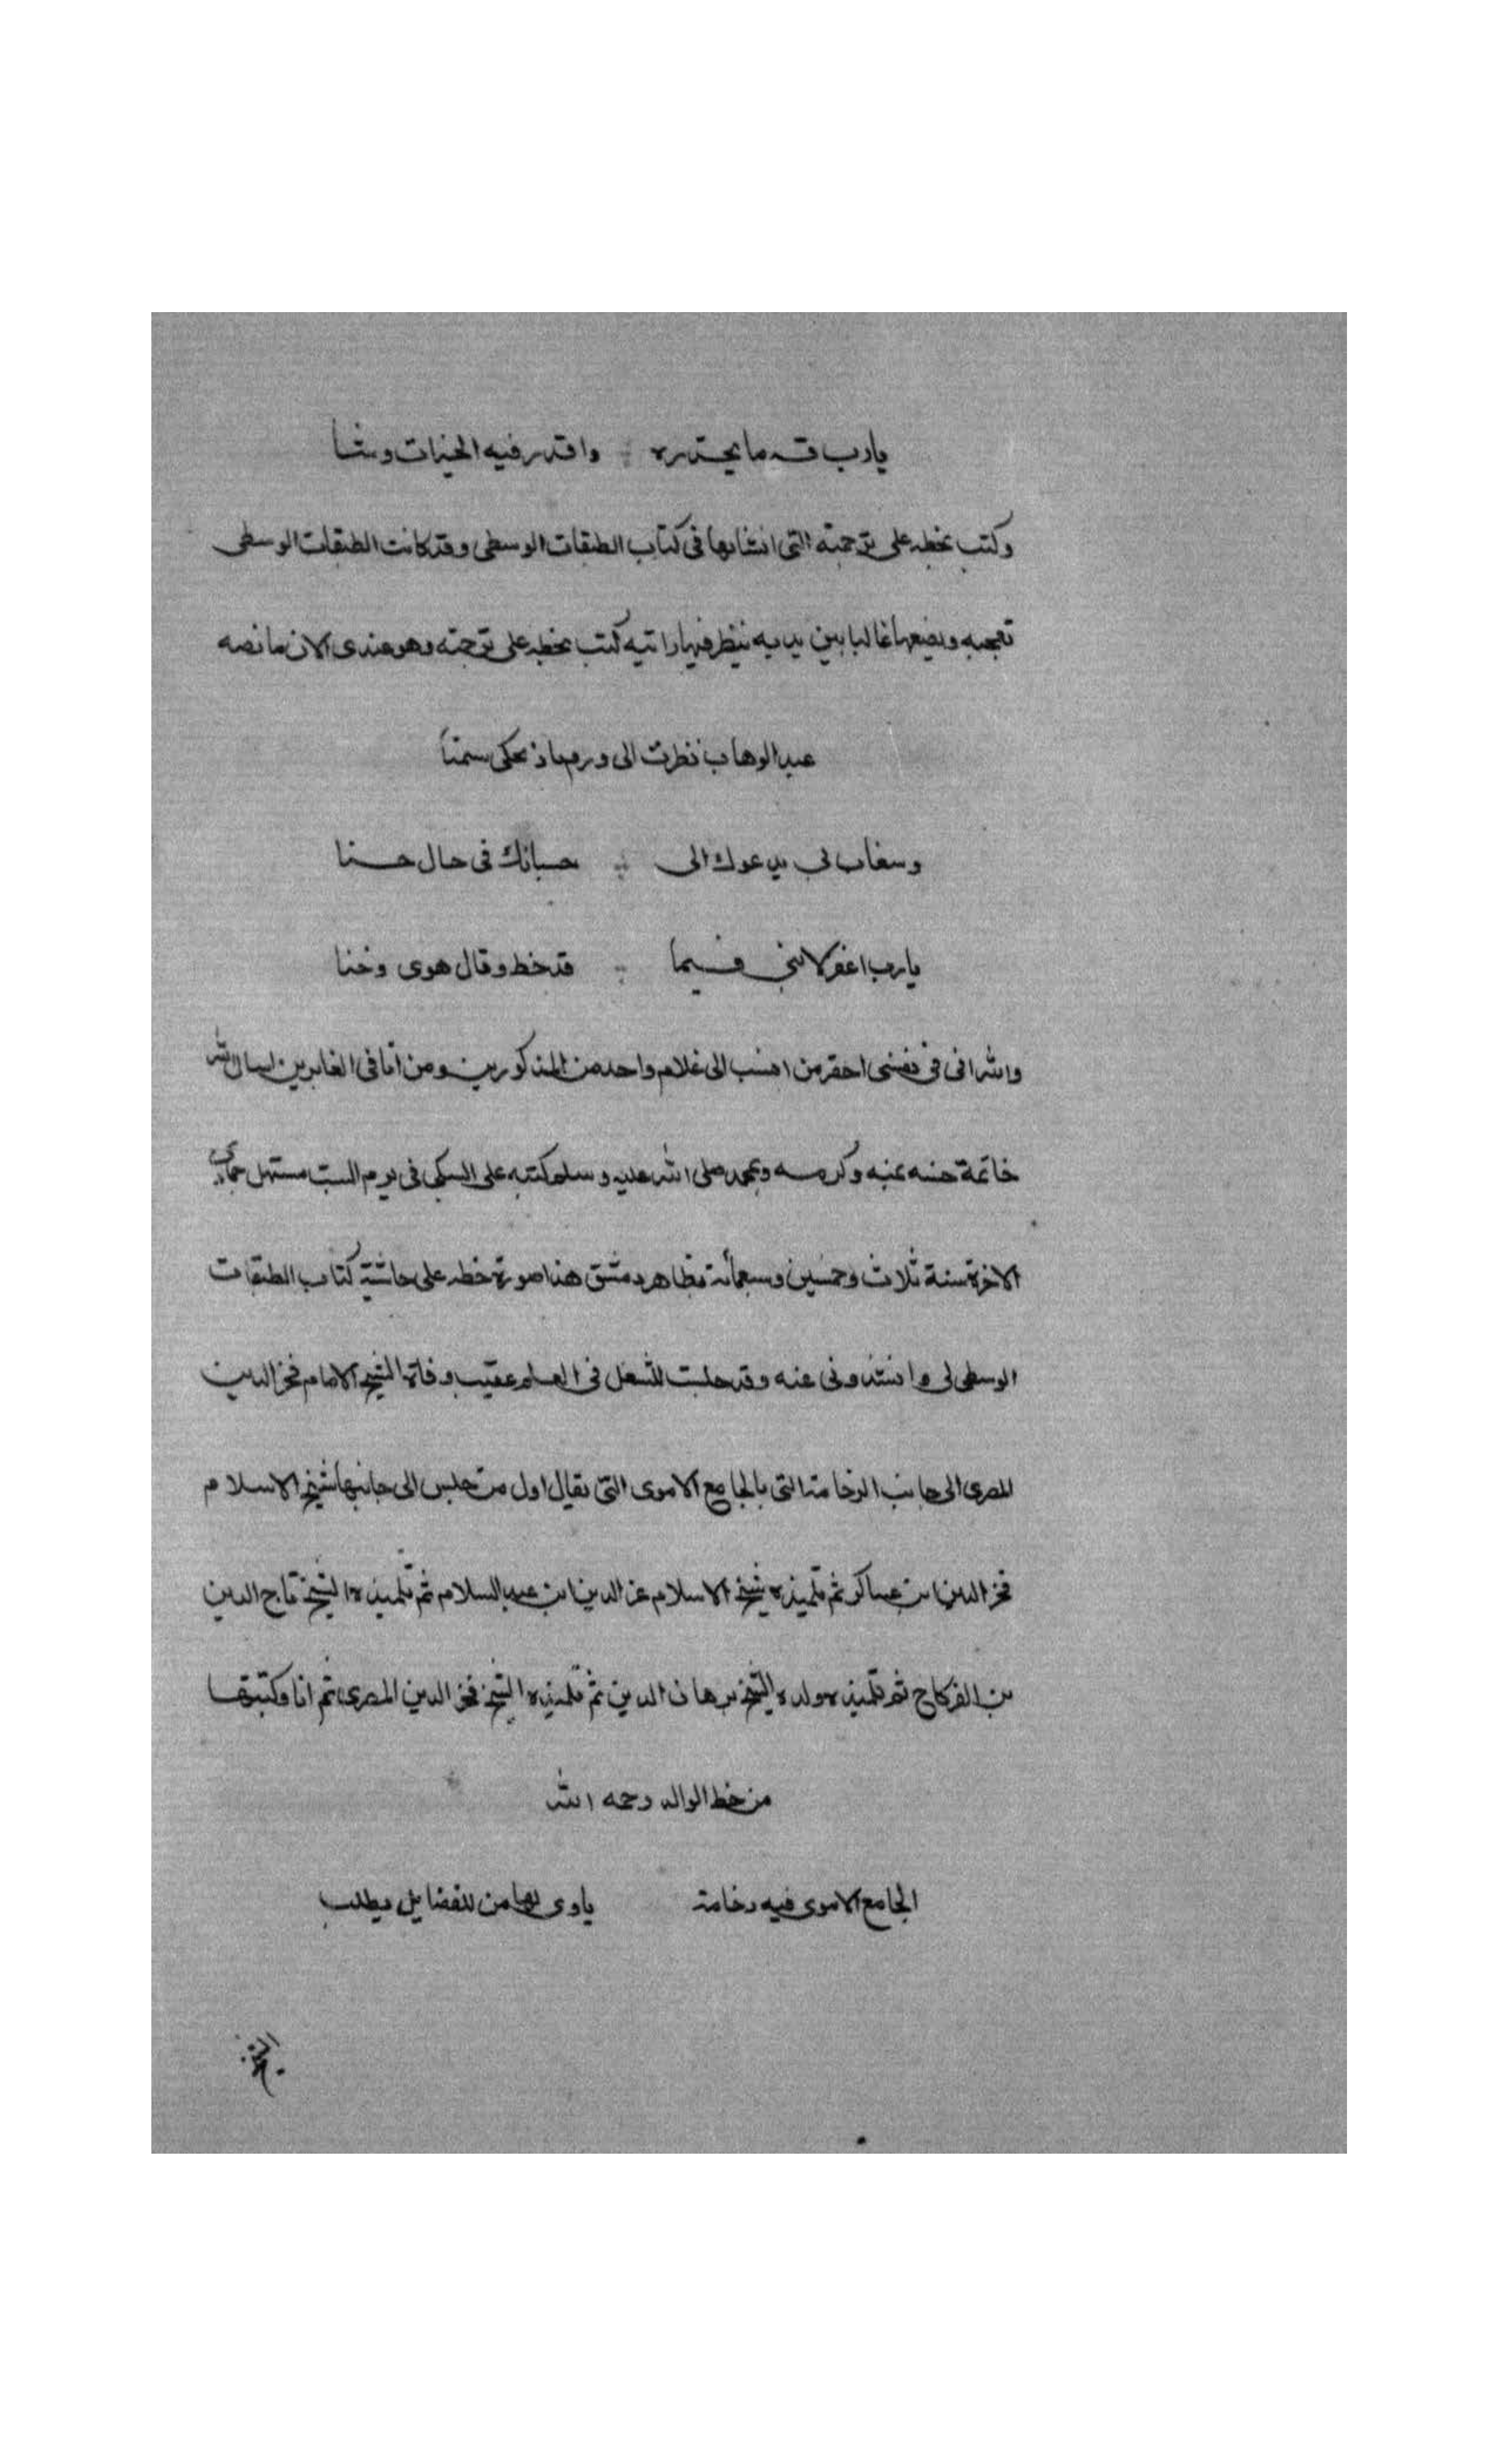 يارب قه ما يحذره واقدر فيه الخيرات وشا
وكتب بخطه على ترجمته التى انشابها فى كتاب الطبقات الوسطى وقد كانت الطبقات الوسطى
تعجبه ويضعها غالبا بين يديه ينظر فيها راتيه كتب بخطه على ترجمته وهو عندى الان ما نصه
عبد الوهاب نظرت الى ورم باذ يحكى سمنا
وسغاب لى يدعوك الى حسبانك فى حال حسنا
يارب اغفر لابنى فيما قد خط وقال هوى وخنا
والله انى فى نفسى احقر من انسب الى غلام واحد من المذكورين ومن انا فى الغابرين اسال الله
خاتمة حسنه بمنه وكرمه وبمحمد صلى الله عليه وسلم كتبه على السبكى فى يوم السبت مستهل جمادى
الاخرة سنة ثلاث وخمسين وسبعمائة بظاهر دمشق هذا صورة خطه على حاشية كتاب الطبقات
الوسطى لى وانشدونى عنه وقد جلست للشغل فى العلم عقيب وفاة الشيخ الامام فخر الدين
المصرى الى جانب الرخامة التى بالجامع الاموى التى يقال اول من جلس الى جانبها شيخ الاسلام
فخر الدين ابن عساكر ثم تلميذه شيخ الاسلام عز الدين ابن عبد السلام ثم تلميذه الشيخ تاج الدين
بن الفركاح ثم تلميذه ولده الشيخ برهان الدين ثم تلميذه الشيخ فخر الدين المصرى ثم انا وكتبتها
من خط الوالد رحمه الله
الجامع الاموى فيه رخامة ياوى لها من للفضايل يطلب